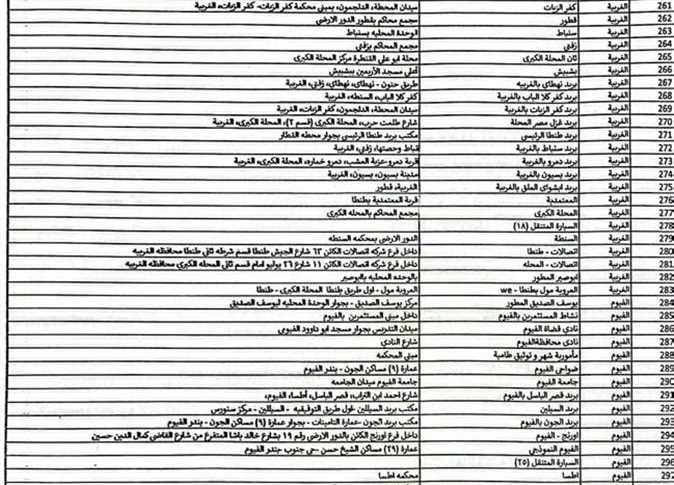 261 الغربية كفر الزيات ميدان المحطة، الدلجمون، بمبنى محكمة كفر الزيات- كفر الزيات، الغربية
262 الغربية قطور مجمع محاكم بقطور الدور الارضي
263 الغربية سنباط الوحدة المحليه بسنباط
264 الغربية زفتي مجمع المحاكم بزفتي
265 الغربية ثان المحلة الكبرى محلة ابو علي القنطرة مركز المحلة الكبرى
266 الغربية بشبيش أعلى مسجد الأربعين ببشبيش
267 الغربية بريد نهطاي بالغربيه طريق حنون - نهطاي، نهطاي، زفتي، الغربية
268 الغربية بريد كفر كلا الباب بالغربية كفر كلا الباب، السنطه، الغربية
269 الغربية بريد كفر الزيات بالغربية ميدان المحطة، الدلجمون، كفر الزيات، الغربية
270 الغربية بريد غزل مصر المحلة شارع طلعت حرب، المحلة الكبرى (قسم ٢)، المحلة الكبرى، الغربية
271 الغربية بريد طنطا الرئيسي مكتب بريد طنطا الرئيسي بجوار محطه القطار
272 الغربية بريد سنباط بالغربية قباط وحصتها، زفتي، الغربية
273 الغربية بريد دمرو بالغربية قرية دمرو عزبة العشب، دمرو خماره، المحلة الكبرى، الغربية
274 الغربية بريد بسيون بالغربية مدينة بسيون، بسيون، الغربية
275 الغربية بريد ابشواي الملق بالغربية الغربية، قطور
276 الغربية المعتمدية قرية المعتمدية بطنطا
277 الغربية المحلة الكبرى مجمع المحاكم بالمحله الكبرى
278 الغربية السيارة المتنقل (١٨)
279 الغربية السنطة الدور الارضي بمحكمه السنطه
280 الغربية اتصالات - طنطا داخل فرع شركه اتصالات الكائن ٦٣ شارع الجيش طنطا قسم شرطه ثاني طنطا محافظه الغربيه
281 الغربية اتصالات - المحله داخل فرع شركه اتصالات الكائن ١١ شارع ٢٦ يوليو امام قسم ثاني المحله الكبري محافظه الغربيه
282 الغربية ابوصير المطور بالوحده المحليه بالبوصير
283 الغربية العروبة مول بطنطا - we العروبة مول - اول طريق طنطا المحلة الكبرى - طنطا
284 الفيوم يوسف الصديق المطور مركز يوسف الصديق - بجوار الوحدة المحليه ليوسف الصديق
285 الفيوم نشاط المستثمرين بالفيوم داخل مبنى المستثمرين بالفيوم
286 الفيوم نادي قضاة الفيوم ميدان التدريس بجوار مسجد ابو داوود الفيومي
287 الفيوم نادي محافظةالفيوم شارع النادي
288 الفيوم مأمورية شهر و توثيق طامية مبنى المحكمه
289 الفيوم ضواحي الفيوم عمارة (٩) مساكن الجون - بندر الفيوم
290 الفيوم جامعة الفيوم جامعة الفيوم ميدان الجامعه
291 الفيوم بريد قصر الباسل بالفيوم شارع احمد ابن التراب، قصر الباسل، أطسا، الفيوم،
292 الفيوم بريد السيلين مكتب بريد السيللين -اول طريق التوفيقيه - السيللين - مركز سنورس
293 الفيوم بريد الجون بالفيوم مكتب بريد الجون -عمارة التامينات - بجوار عمارة (٩) مساكن الجون - بندر الفيوم
294 الفيوم اورنج - الفيوم داخل فرع اورنج الكائن بالدور الارضي رقم ١٩ بشارع خالد باشا المتفرع من شارع القاضي كمال الدين حسين
295 الفيوم الفيوم النموذجي عمارة (٢٩) مساكن الشيخ حسن -حي جنوب -بندر الفيوم
296 الفيوم السيارة المتنقل (٢٥)
297 الفيوم اطسا محكمه اطسا